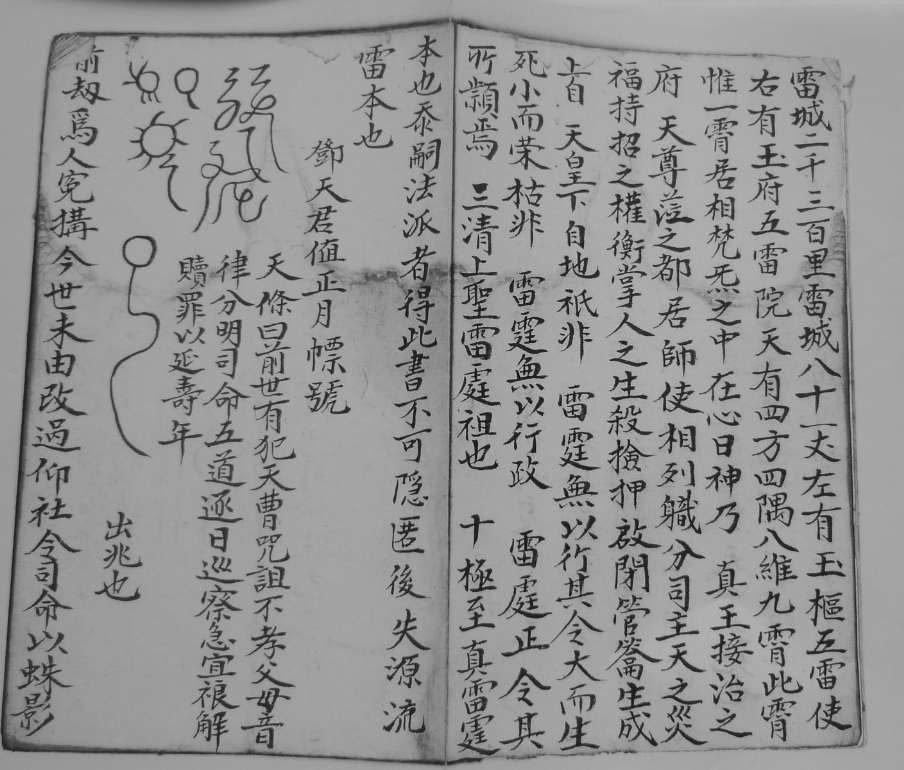 雷城二千三百里雷城八十一丈左有玉樞五雷使
右有玉府五雷院天有四方四隅八維九霄此霄
惟一霄居相梵炁之中在心曰神乃 真王接治之
府 天尊蒞之都居師使相列職分司主天之災
福持招之權衡掌人之生殺撿押啟閉管籥生成
上自 天皇下自地祇非 雷霆無以行其令大而生
死小而荣枯非 雷霆無以行政 雷霆正令其
所顙焉 三清上聖雷霆祖也 十極至真雷霆
本也忝嗣法派者得此書不可隠匿後失源流
雷本也
鄧天君值正月幖號
天條曰前世有犯天曹咒詛不孝父母音
律分明司命五道逐日巡察急宜禳解
贖罪以延壽年
出兆也
前刼爲人冤搆今世未由改過仰社令司命以蛛影